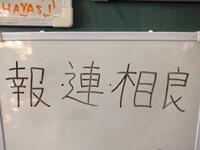 HAYASI
報・連・相良